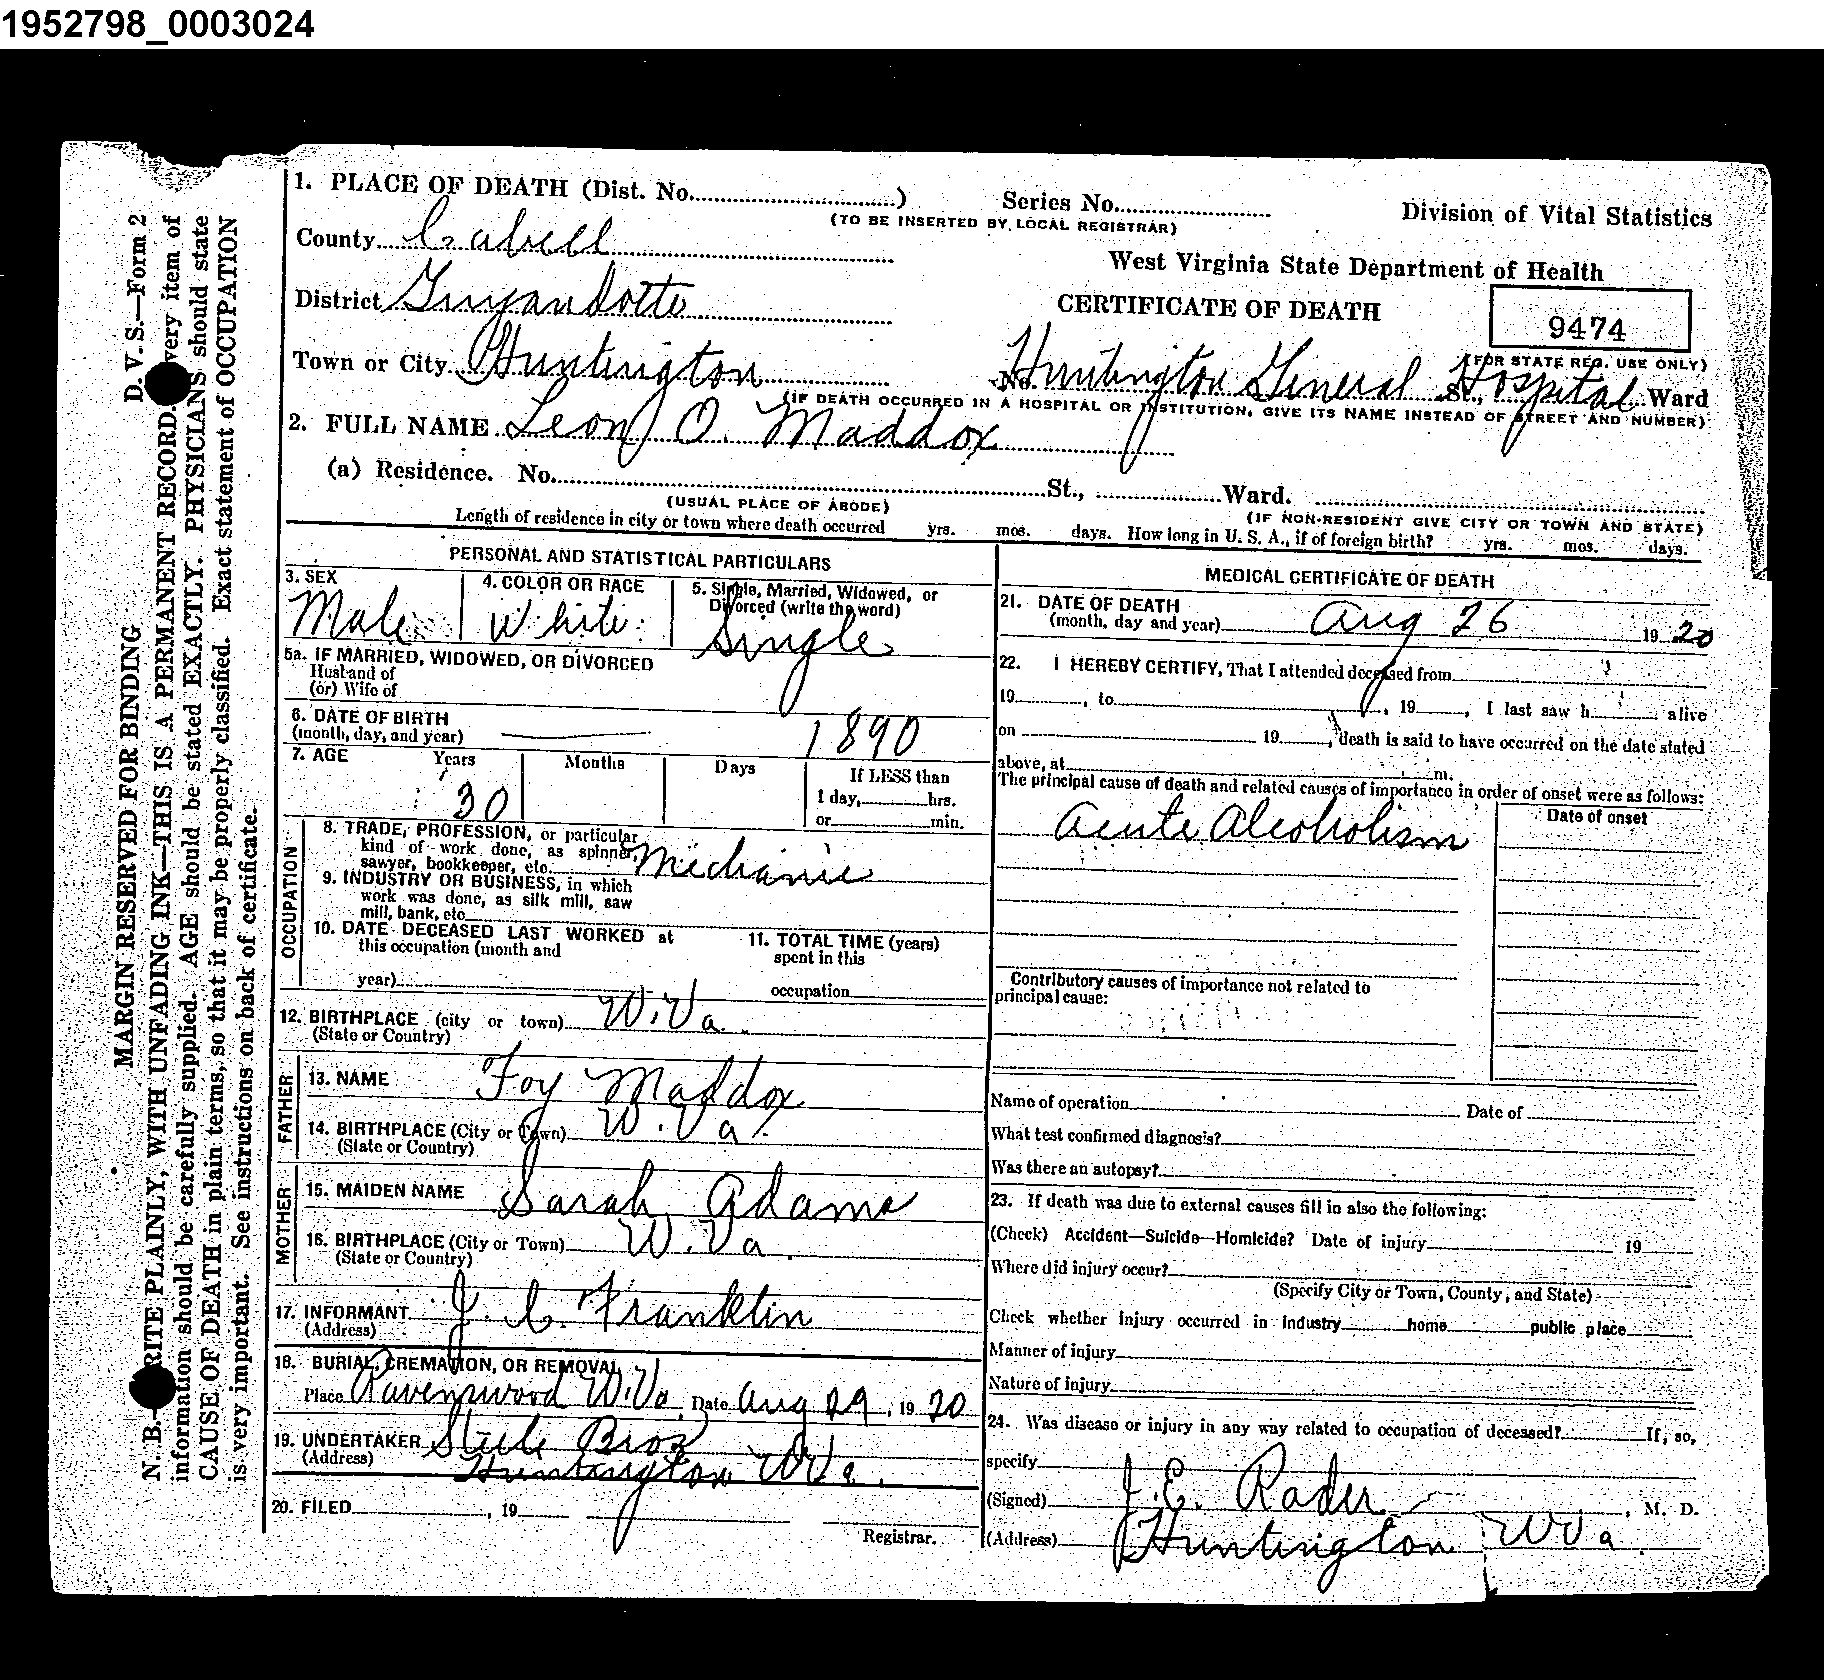 1952798_0003024
MARGIN RESERVED FOR BINDING D. V. S.—Form 2
N. B.—RITE PLAINLY, WITH UNFADING INK—THIS IS A PERMANENT RECORD. very item of
information should be carefully supplied. AGE should be stated EXACTLY. PHYSICIANS should state
CAUSE OF DEATH in plain terms, so that it may be properly classified. Exact statement of OCCUPATION
is very important. See instructions on back of certificate.
1. PLACE OF DEATH (Dist. No. ) Series No.
(TO BE INSERTED BY LOCAL REGISTRAR)
Division of Vital Statistics
County Cabell
West Virginia State Department of Health
District Guyandotte
CERTIFICATE OF DEATH
9474
(FOR STATE REG. USE ONLY)
Town or City Huntington No. Huntington General Hospital St., Ward
(IF DEATH OCCURRED IN A HOSPITAL OR INSTITUTION, GIVE ITS NAME INSTEAD OF STREET AND NUMBER)
2. FULL NAME Leon O. Maddox
(a) Residence. No. St., Ward.
(USUAL PLACE OF ABODE) (IF NON-RESIDENT GIVE CITY OR TOWN AND STATE)
Length of residence in city or town where death occurred yrs. mos. days. How long in U. S. A., if of foreign birth? yrs. mos. days.
PERSONAL AND STATISTICAL PARTICULARS
3. SEX
Male
4. COLOR OR RACE
White
5. Single, Married, Widowed, or
Divorced (write the word)
Single
5a. IF MARRIED, WIDOWED, OR DIVORCED
Husband of
(or) Wife of
6. DATE OF BIRTH
(month, day, and year) 1890
7. AGE Years Months Days If LESS than
30
1 day, hrs.
or min.
OCCUPATION
8. TRADE, PROFESSION, or particular
kind of work done, as spinner,
sawyer, bookkeeper, etc. Mechanic
9. INDUSTRY OR BUSINESS, in which
work was done, as silk mill, saw
mill, bank, etc.
10. DATE DECEASED LAST WORKED at
this occupation (month and
year)
11. TOTAL TIME (years)
spent in this
occupation
12. BIRTHPLACE (city or town) W.Va.
(State or Country)
FATHER
13. NAME Foy Maddox
14. BIRTHPLACE (City or Town) W.Va.
(State or Country)
MOTHER
15. MAIDEN NAME Sarah Adams
16. BIRTHPLACE (City or Town) W.Va.
(State or Country)
17. INFORMANT J. C. Franklin
(Address)
18. BURIAL, CREMATION, OR REMOVAL
Place Ravenswood W.Va. Date Aug 29, 1920
19. UNDERTAKER Steele Bros
(Address) Huntington WVa.
20. FILED , 19
Registrar.
MEDICAL CERTIFICATE OF DEATH
21. DATE OF DEATH
(month, day and year) Aug 26 1920
22. I HEREBY CERTIFY, That I attended deceased from
19 , to , 19 , I last saw h alive
on 19 , death is said to have occurred on the date stated
above, at m.
The principal cause of death and related causes of importance in order of onset were as follows:
Date of onset
Acute Alcoholism
Contributory causes of importance not related to
principal cause:
Name of operation Date of
What test confirmed diagnosis?
Was there an autopsy?
23. If death was due to external causes fill in also the following:
(Check) Accident—Suicide—Homicide? Date of injury 19
Where did injury occur?
(Specify City or Town, County, and State)
Check whether injury occurred in industry home public place
Manner of injury
Nature of injury
24. Was disease or injury in any way related to occupation of deceased? If, so,
specify
(Signed) J. E. Rader , M. D.
(Address) Huntington WVa.